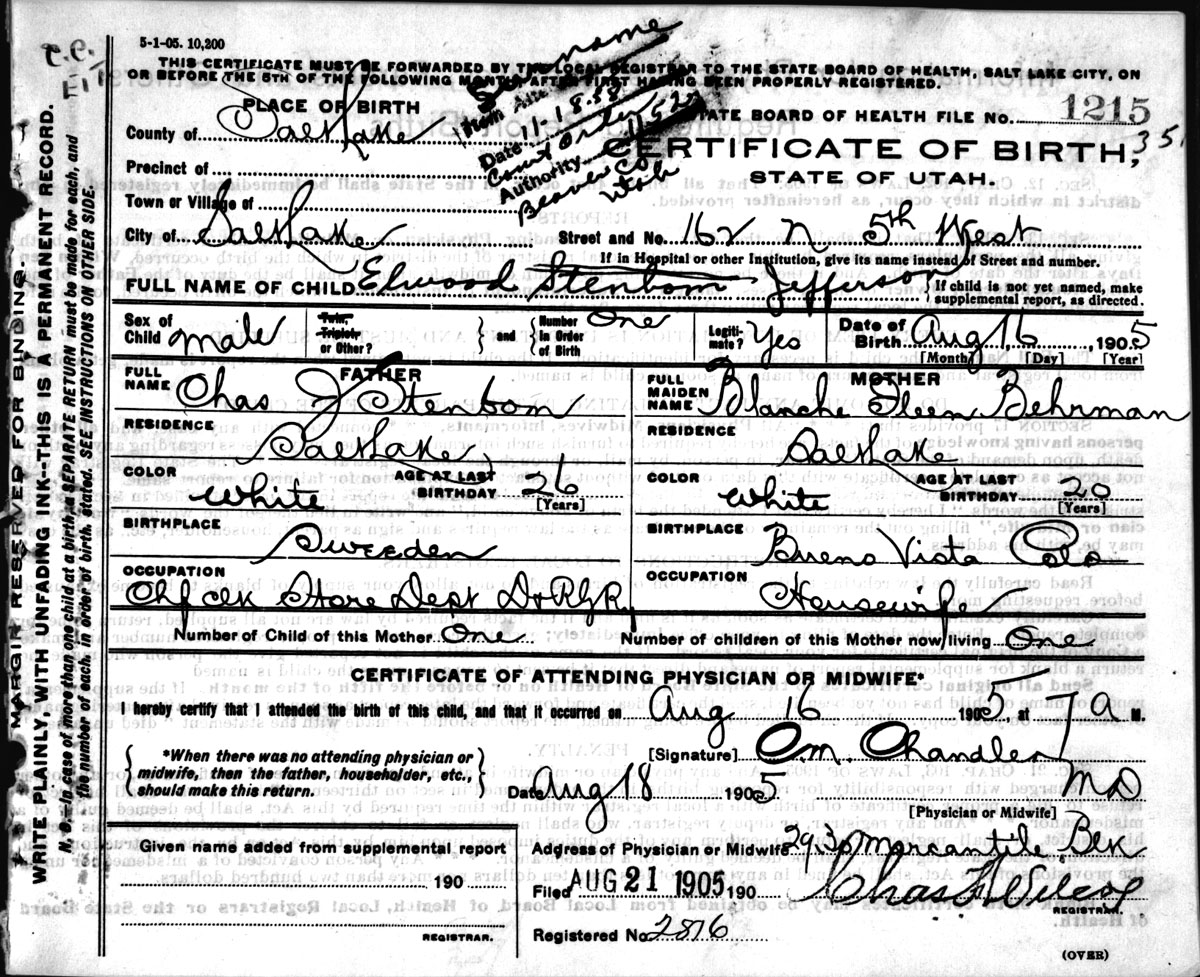 5-1-05. 10,200
THIS CERTIFICATE MUST BE FORWARDED BY THE LOCAL REGISTRAR TO THE STATE BOARD OF HEALTH, SALT LAKE CITY, ON
OR BEFORE THE 5TH OF THE FOLLOWING MONTH AFTER FIRST HAVING BEEN PROPERLY REGISTERED.
Surname
Item Altered
Date 11-18-58
Court order
Authority
Beaver Co.
Utah
PLACE OF BIRTH
STATE BOARD OF HEALTH FILE NO. 1215
35
County of Salt Lake
CERTIFICATE OF BIRTH,
Precinct of
STATE OF UTAH.
Town or Village of
City of Salt Lake Street and No. 162 N 5th West
If in Hospital or other Institution, give its name instead of Street and number.
FULL NAME OF CHILD Elwood Stenbom Jefferson { If child is not yet named, make supplemental report, as directed.
Sex of Child Male Twin, Triplet, or Other? } and { Number in Order of Birth One Legiti- mate? Yes Date of Birth Aug 16 1905
[Month] [Day] [Year]
FATHER
FULL NAME Chas J Stenbom
RESIDENCE
Salt Lake
COLOR White AGE AT LAST BIRTHDAY 26
[Years]
BIRTHPLACE
Sweeden
OCCUPATION
Chf clk Store Dept D & R G Ry
MOTHER
FULL MAIDEN NAME Blanche Ileen Behrman
RESIDENCE
Salt Lake
COLOR White AGE AT LAST BIRTHDAY 20
[Years]
BIRTHPLACE
Buena Vista Colo
OCCUPATION
Housewife
Number of Child of this Mother One Number of children of this Mother now living One
CERTIFICATE OF ATTENDING PHYSICIAN OR MIDWIFE*
I hereby certify that I attended the birth of this child, and that it occurred on Aug 16 1905, at 7 A M.
{ *When there was no attending physician or midwife, then the father, householder, etc., should make this return. }
[Signature] C.M. Chandler
Date Aug 18 1905 MD
[Physician or Midwife]
Given name added from supplemental report
190
REGISTRAR.
Address of Physician or Midwife 293 Mercantile Blk
Filed AUG 21 1905 190 Chas Wilcox
REGISTRAR.
Registered No. 2876
(OVER)
MARGIN RESERVED FOR BINDING.
WRITE PLAINLY, WITH UNFADING INK--THIS IS A PERMANENT RECORD.
N. B.—In case of more than one child at a birth a SEPARATE RETURN must be made for each, and
the number of each, in order of birth, stated. SEE INSTRUCTIONS ON OTHER SIDE.